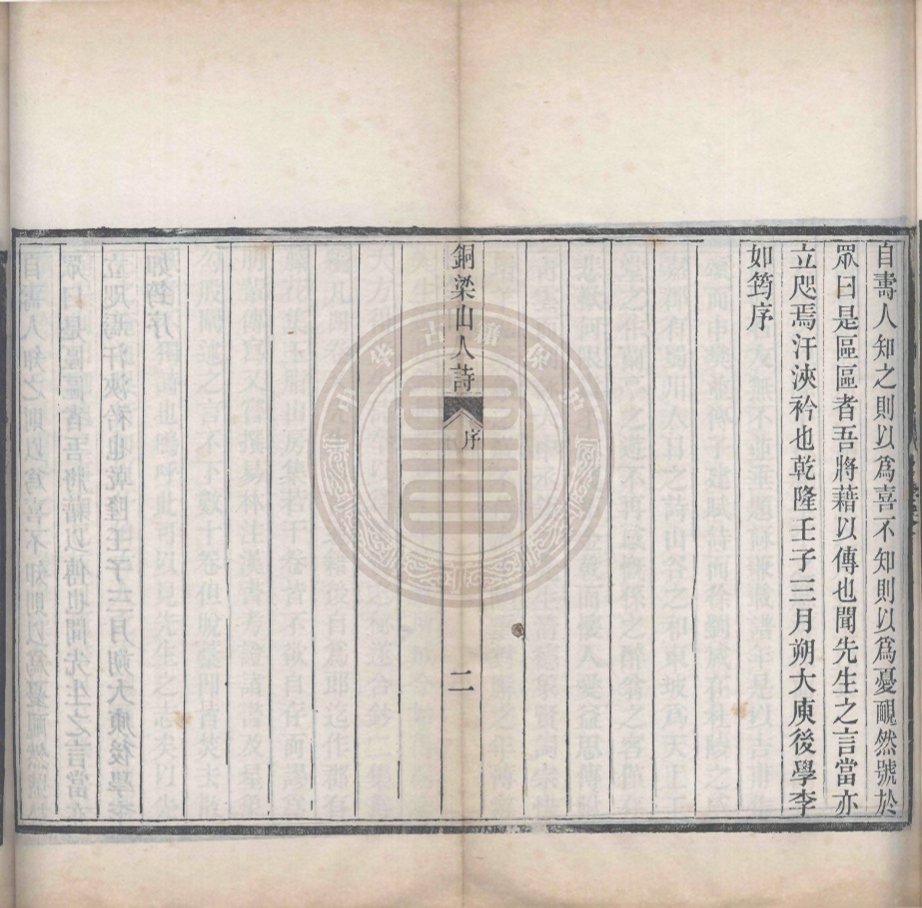 自壽人知之則以爲喜不知則以爲憂覥然號於
眾曰是區區者吾將藉以傳也聞先生之言當亦
立咫焉汗浹衿也乾隆壬子三月朔大庾後學李
如筠序
銅梁山人詩
序
二